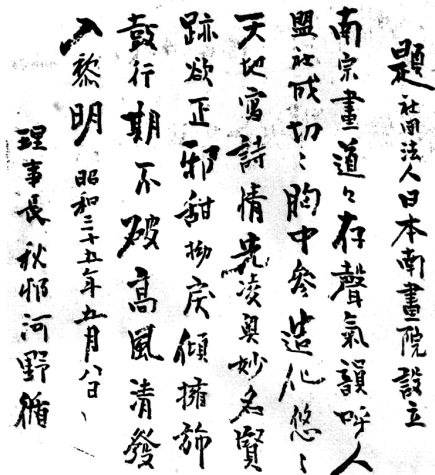 題 社団法人日本南畫院設立
南宗畫道々存聲氣韻呼人
盟社成切々胸中參造化悠々
天地寫詩情先凌奥妙名賢
跡欲正邪甜拗戻傾擁旆
鼓行期不破高風清發
入黎明 昭和三十五年五月八日
理事長秋邨河野循